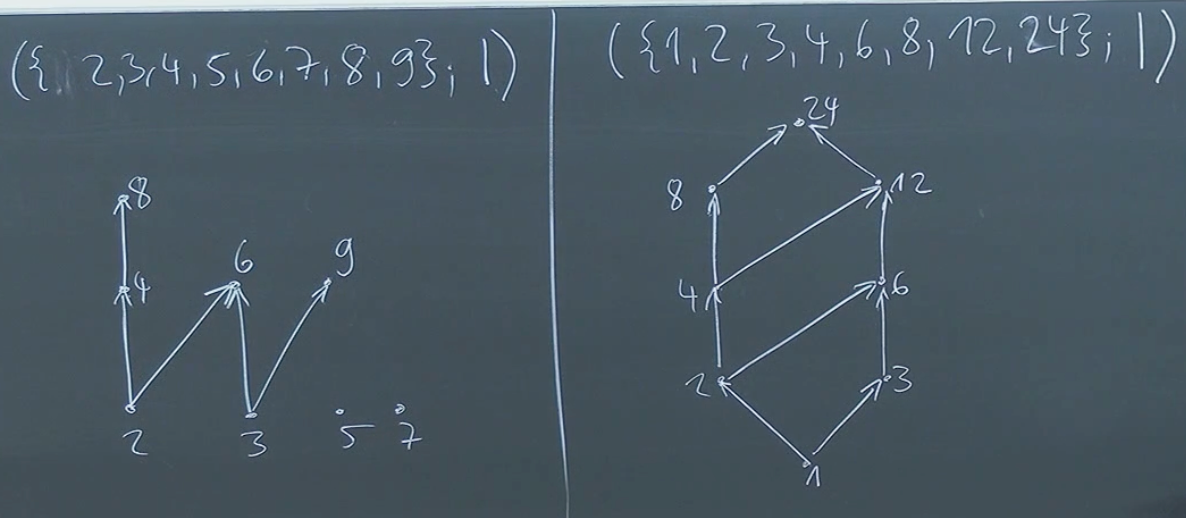 ({ 2,3,4,5,6,7,8,9}; |)
8
6
9
4
2
3
5
7
({1,2,3,4,6,8,12,24}; |)
24
8
12
4
6
2
3
1